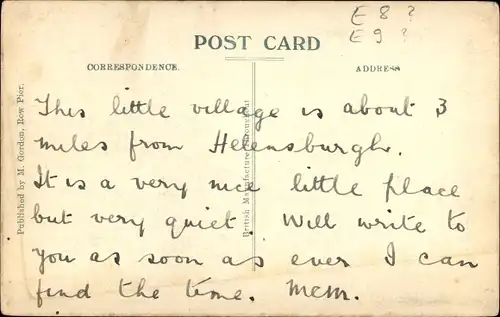 E 8 ?
E 9 ?
POST CARD
CORRESPONDENCE.
ADDRESS
Published by M. Gordon, Row Pier.
British Manufacture Throughout
This little village is about 3
miles from Helensburgh.
It is a very nice little place
but very quiet. Will write to
you as soon as ever I can
find the time. MCM.